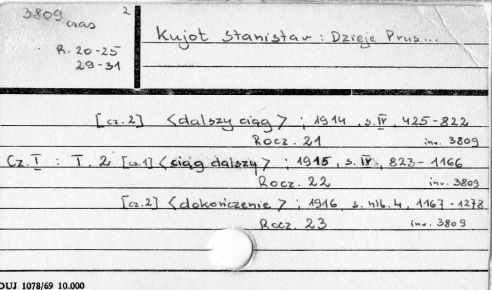 3809 czas 2
R. 20-25
29-31
Kujot Stanisław : Dzieje Prus...
[cz.2] <dalszy ciąg> ; 1914, s. IV, 425-822
Rocz. 21 inv. 3809
Cz. I : T. 2 [cz.1] <ciąg dalszy> ; 1915, s. IV, 823-1166
Rocz. 22 inv. 3809
[cz.2] <dokończenie> ; 1916, s. nlb. 4, 1167-1278
Rocz. 23 inv. 3809
DUJ 1078/69 10.000